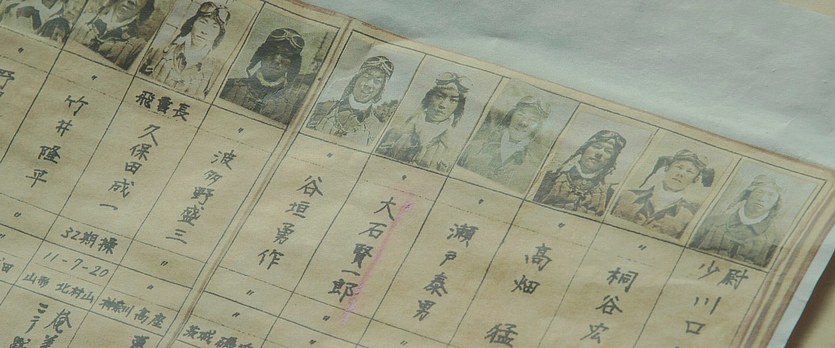 少尉
川口
〃
桐谷宏
〃
高畑猛
〃
瀬戸泰男
〃
大石賢一郎
〃
谷垣勇作
〃
波多野盛三
〃
飛曹長
久保田成一
32期操
〃
竹井隆平
〃
11-7-20
山形 北村山
神奈川 高座
茨城